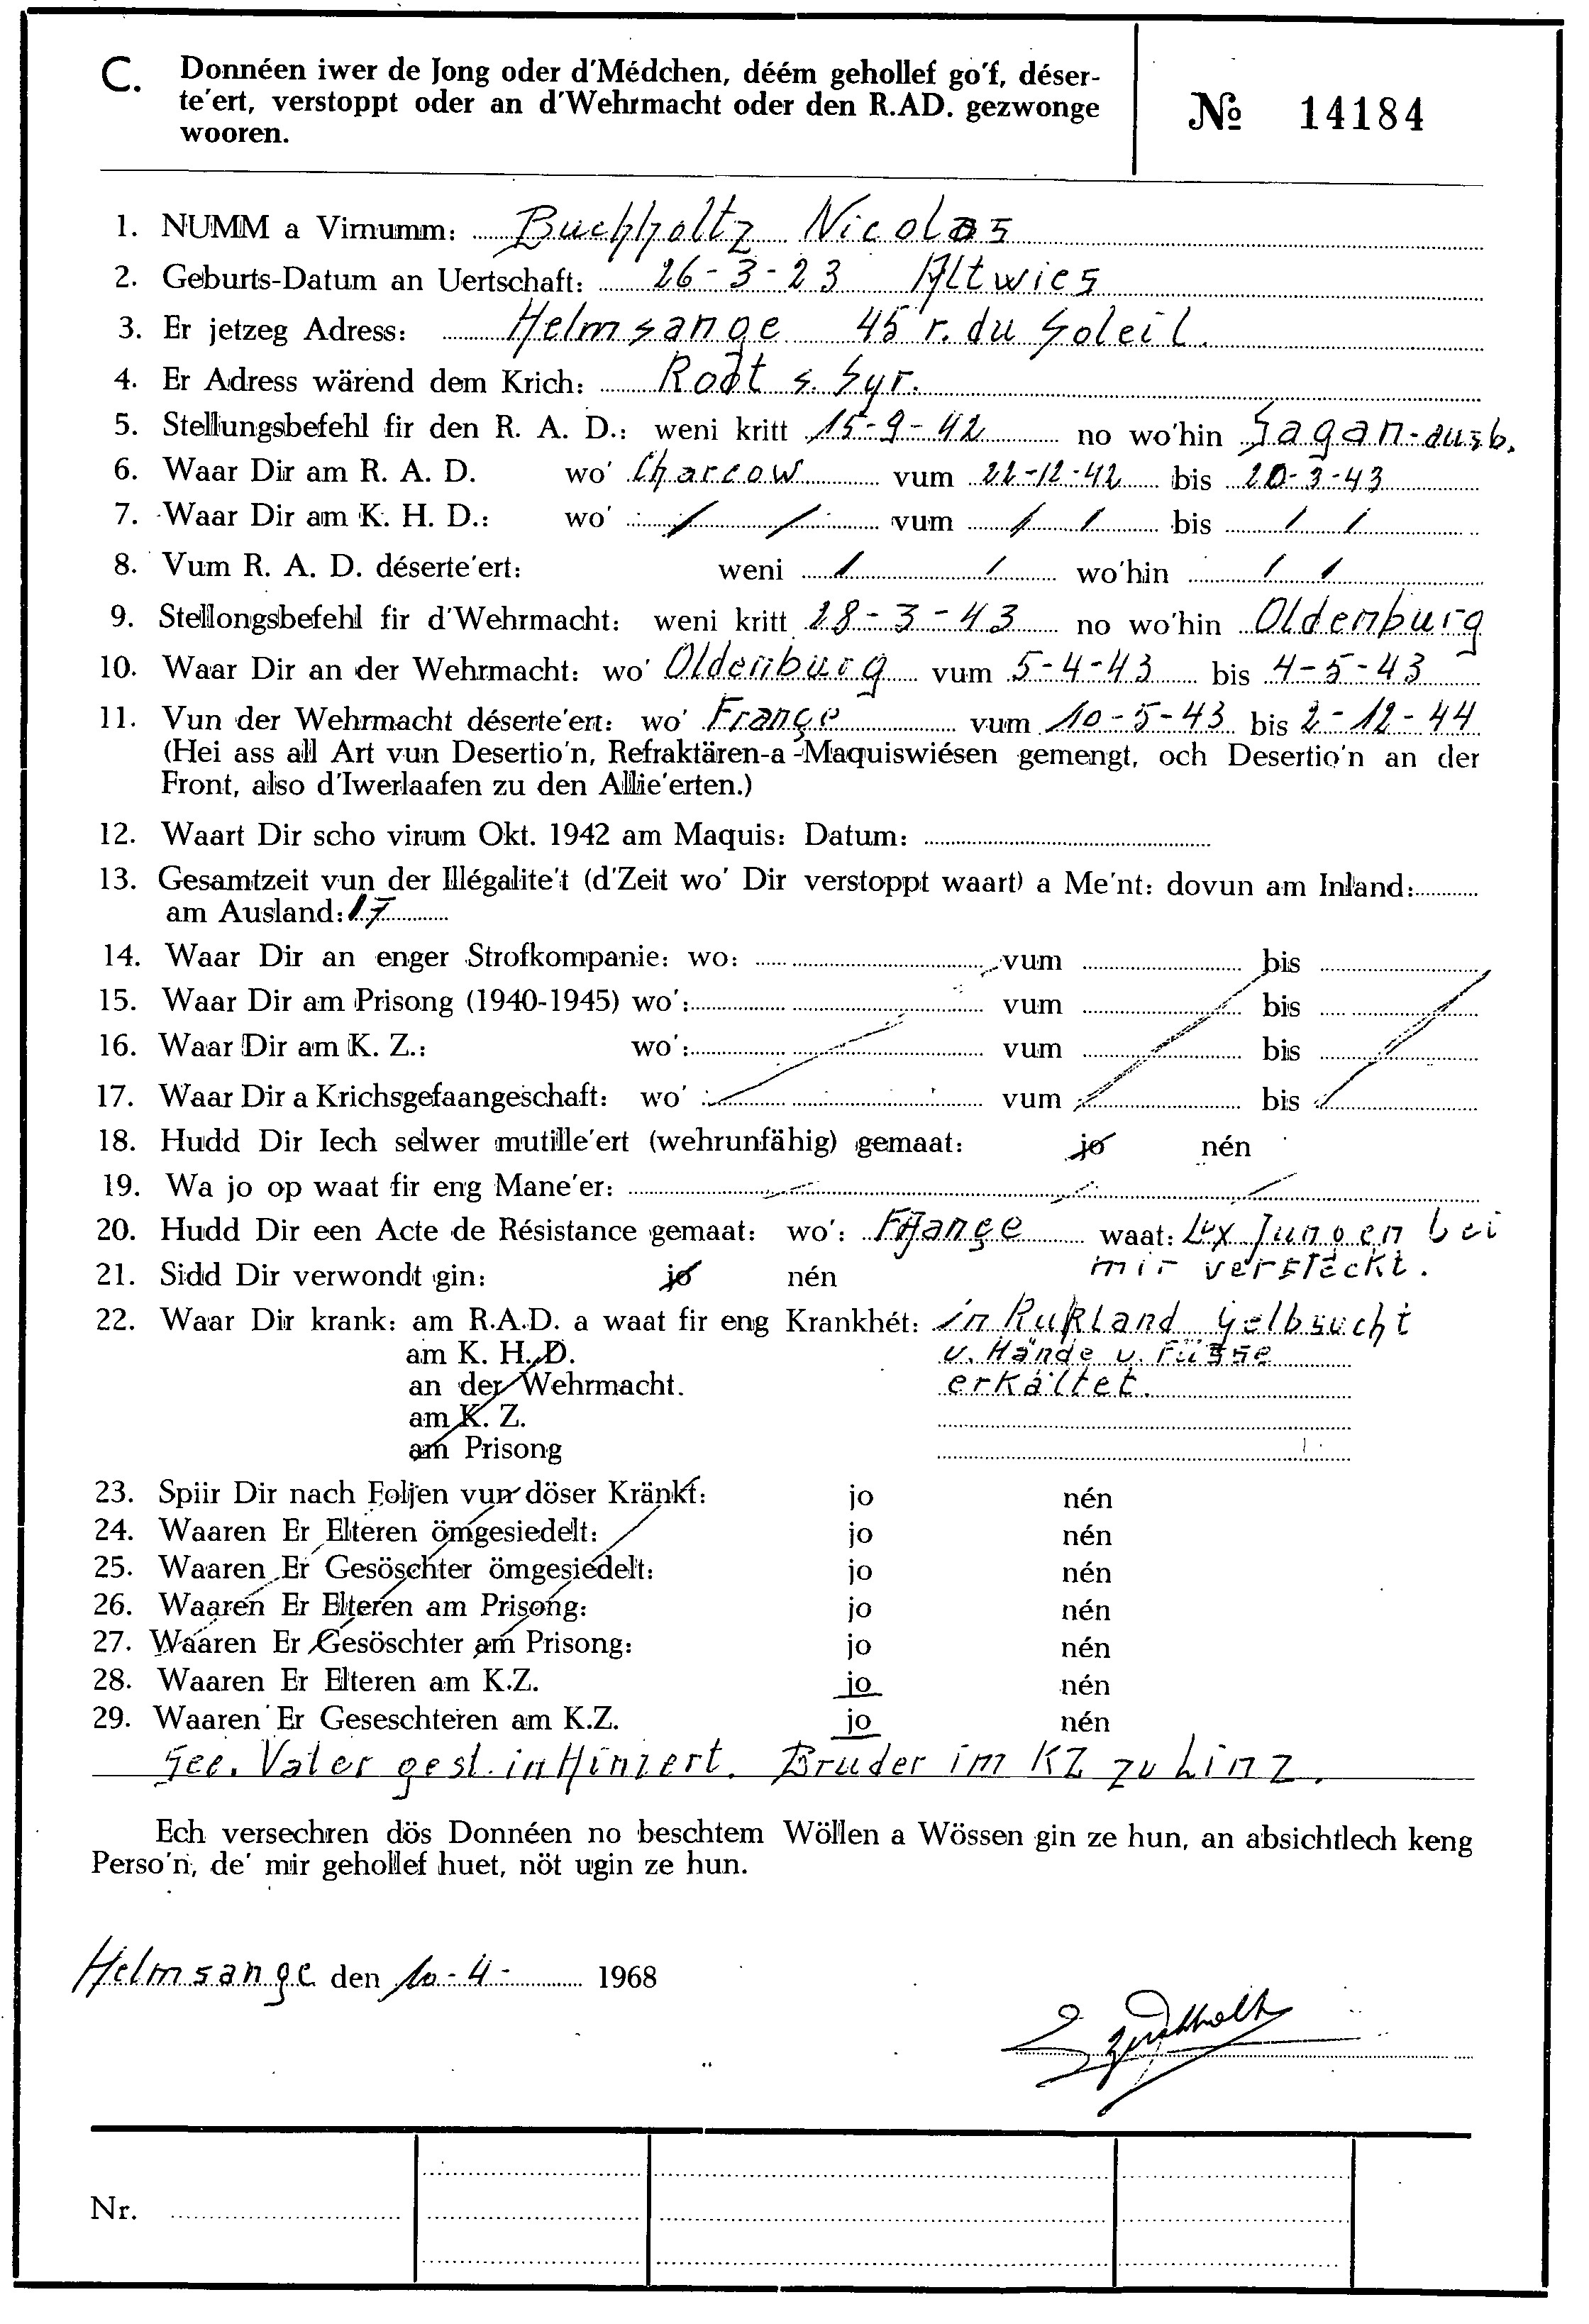 C. Donnéen iwer de Jong oder d'Médchen, déém gehollef go'f, déser-
te'ert, verstoppt oder an d'Wehrmacht oder den R.AD. gezwonge
wooren.
№ 14184
1. NUMM a Virnumm: Buchholtz Nicolas
2. Geburts-Datum an Uertschaft: 26-3-23 Altwies
3. Er jetzeg Adress: Helmsange 45 r. du Soleil.
4. Er Adress wärend dem Krich: Rodt s. Syr.
5. Stellungsbefehl fir den R. A. D.: weni kritt 15-9-42 no wo'hin Sagan-ausb.
6. Waar Dir am R. A. D. wo' Charcow vum 22-12-42 bis 20-3-43
7. Waar Dir am K. H. D.: wo' / / vum / / bis / /
8. Vum R. A. D. déserte'ert: weni / / wo'hin / /
9. Stellongsbefehl fir d'Wehrmacht: weni kritt 28-3-43 no wo'hin Oldenburg
10. Waar Dir an der Wehrmacht: wo' Oldenburg vum 5-4-43 bis 4-5-43
11. Vun der Wehrmacht déserte'ert: wo' Françe vum 10-5-43 bis 2-12-44
(Hei ass all Art vun Desertio'n, Refraktären-a -Maquiswiésen gemengt, och Desertio'n an der
Front, also d'Iwerlaafen zu den Allie'erten.)
12. Waart Dir scho virum Okt. 1942 am Maquis: Datum:
13. Gesamtzeit vun der Illégalite't (d'Zeit wo' Dir verstoppt waart) a Me'nt: dovun am Inland:
am Ausland: 17
14. Waar Dir an enger Strofkompanie: wo: vum bis
15. Waar Dir am Prisong (1940-1945) wo': vum bis
16. Waar Dir am K. Z.: wo': vum bis
17. Waar Dir a Krichsgefaangeschaft: wo' vum bis
18. Hudd Dir Iech selwer mutille'ert (wehrunfähig) gemaat: jo nén
19. Wa jo op waat fir eng Mane'er:
20. Hudd Dir een Acte de Résistance gemaat: wo': Françe waat: Lux Jungen bei
mir versteckt.
21. Sidd Dir verwondt gin: jo nén
22. Waar Dir krank: am R.A.D. a waat fir eng Krankhét: in Rußland Gelbsucht
am K. H. D. u. Hände u. Füsse
an der Wehrmacht. erkältet.
am K. Z.
am Prisong
23. Spiir Dir nach Foljen vun döser Kränkt: jo nén
24. Waaren Er Elteren ömgesiedelt: jo nén
25. Waaren Er Gesöschter ömgesiedelt: jo nén
26. Waaren Er Elteren am Prisong: jo nén
27. Waaren Er Gesöschter am Prisong: jo nén
28. Waaren Er Elteren am K.Z. jo nén
29. Waaren Er Geseschteren am K.Z. jo nén
Vater gest. in Hinzert. Bruder im KZ zu Linz.
Ech versechren dös Donnéen no beschtem Wöllen a Wössen gin ze hun, an absichtlech keng
Perso'n, de' mir gehollef huet, nöt ugin ze hun.
Helmsange den 10-4- 1968
Nr.